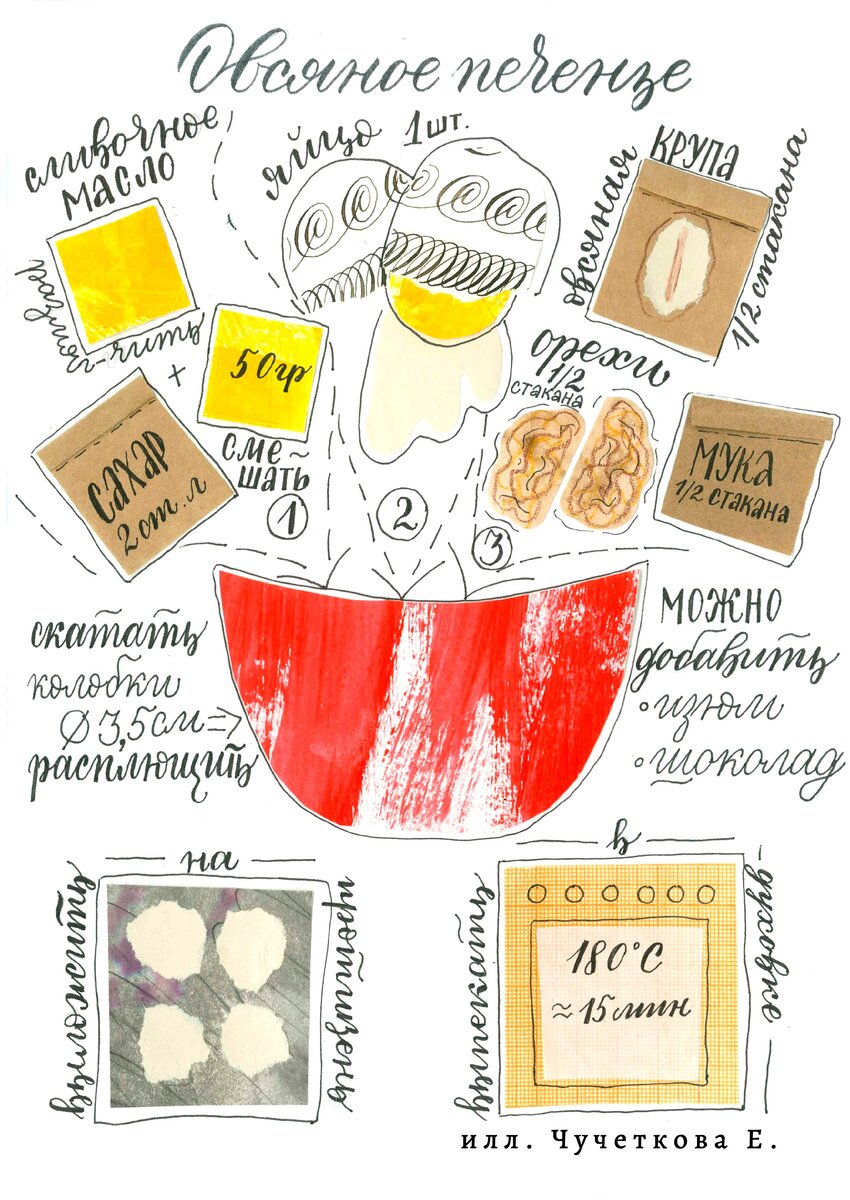 Овсяное печенье
сливочное
масло
размяг-чить
+
50гр
сахар
2 ст. л
сме-
шать
1
яйцо 1 шт.
2
овсяная
крупа
1/2 стакана
орехи
1/2
стакана
мука
1/2 стакана
3
скатать
колобки
Ø 3,5 см =>
расплющить
можно
добавить
• изюм
• шоколад
выложить
на
противень
выпекать
в
духовке
180°С
≈ 15 мин
илл. Чучеткова Е.